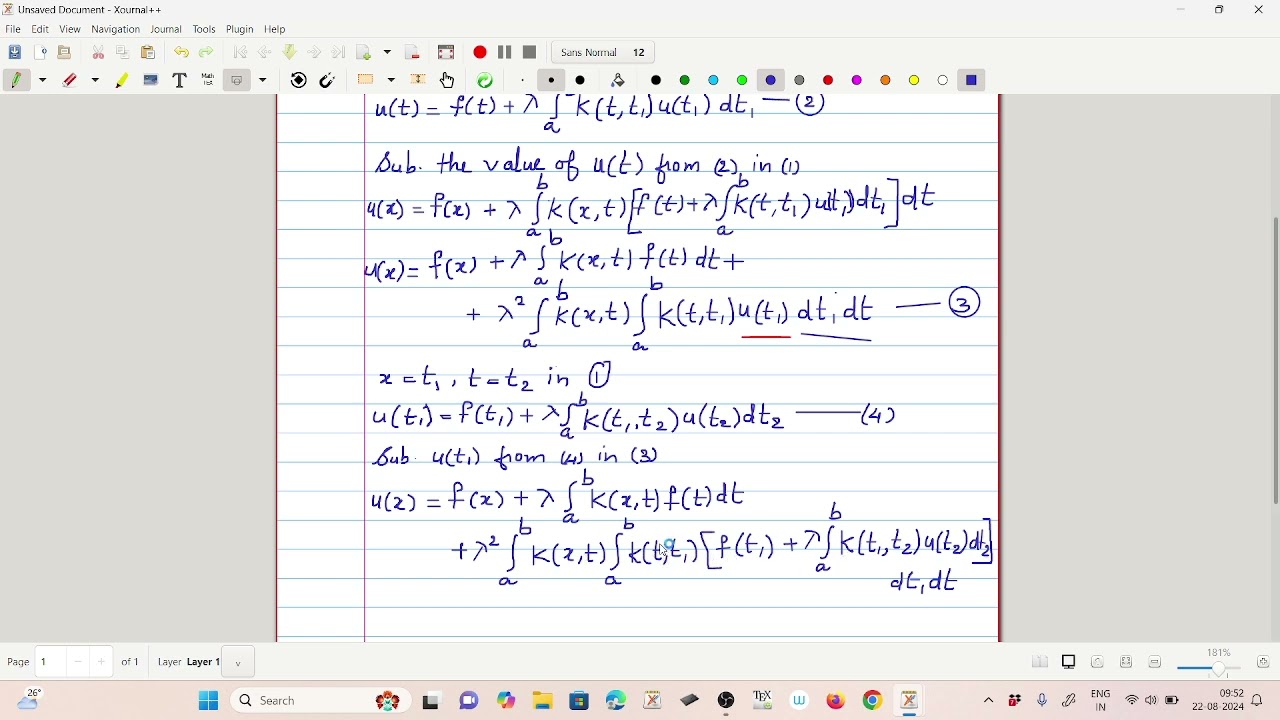 Unsaved Document - Xournal++
File Edit View Navigation Journal Tools Plugin Help
Sans Normal 12
u(t) = f(t) + λ ∫_a K(t,t₁)u(t₁) dt₁ — (2)
Sub. the value of u(t) from (2) in (1)
u(x) = f(x) + λ ∫_a^b K(x,t)[f(t)+λ∫_a^b K(t,t₁)u(t₁)dt₁]dt
u(x) = f(x) + λ ∫_a^b K(x,t) f(t) dt +
+ λ² ∫_a^b K(x,t) ∫_a^b K(t,t₁)u(t₁) dt₁ dt — ③
x = t₁, t = t₂ in ①
u(t₁) = f(t₁) + λ∫_a^b K(t₁,t₂)u(t₂)dt₂ — (4)
Sub. u(t₁) from (4) in (3)
u(x) = f(x) + λ ∫_a^b K(x,t)f(t)dt
+ λ² ∫_a^b K(x,t)∫_a^b K(t,t₁)[f(t₁) + λ∫_a^b K(t₁,t₂)u(t₂)dt₂]
dt₁dt
Page 1 of 1 Layer Layer 1 181%
26° Search ENG IN 09:52 22-08-2024